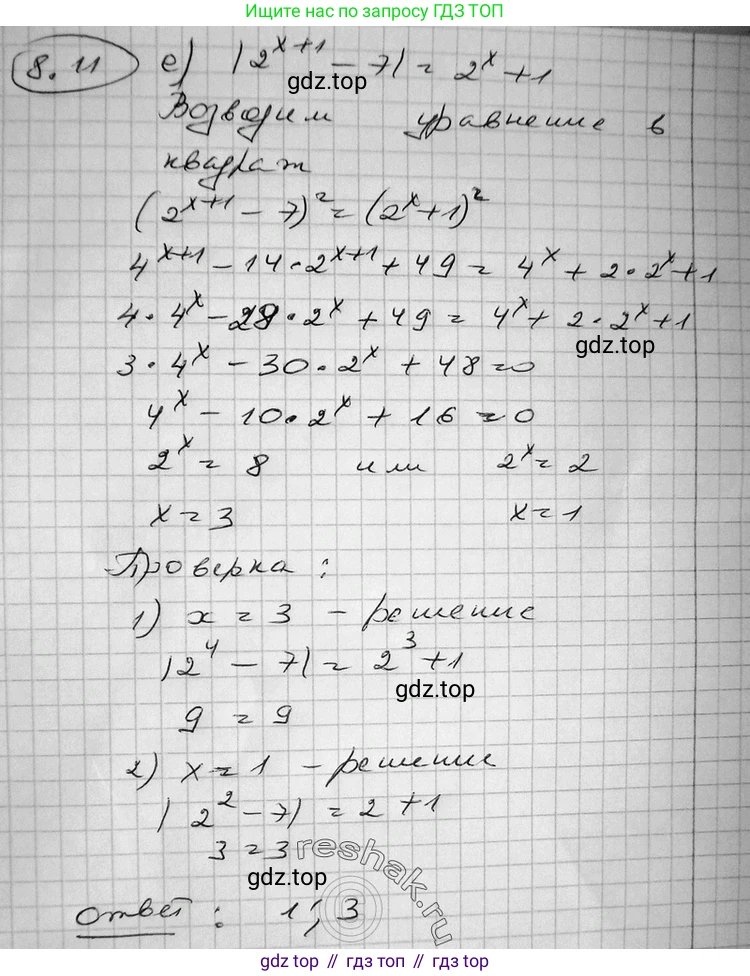 Ищите нас по запросу ГДЗ ТОП
8.11 е) |2^{x+1} - 7| = 2^x + 1
gdz.top
Возводим уравнение в
квадрат
(2^{x+1} - 7)^2 = (2^x + 1)^2
4^{x+1} - 14 · 2^{x+1} + 49 = 4^x + 2 · 2^x + 1
4 · 4^x - 28 · 2^x + 49 = 4^x + 2 · 2^x + 1
gdz.top
3 · 4^x - 30 · 2^x + 48 = 0
4^x - 10 · 2^x + 16 = 0
2^x = 8 или 2^x = 2
x = 3 x = 1
Проверка:
1) x = 3 - решение
|2^4 - 7| = 2^3 + 1
gdz.top
9 = 9
2) x = 1 - решение
|2^2 - 7| = 2 + 1
3 = 3
reshak.ru
gdz.top
Ответ: 1; 3
gdz.top // гдз.топ // gdz.top